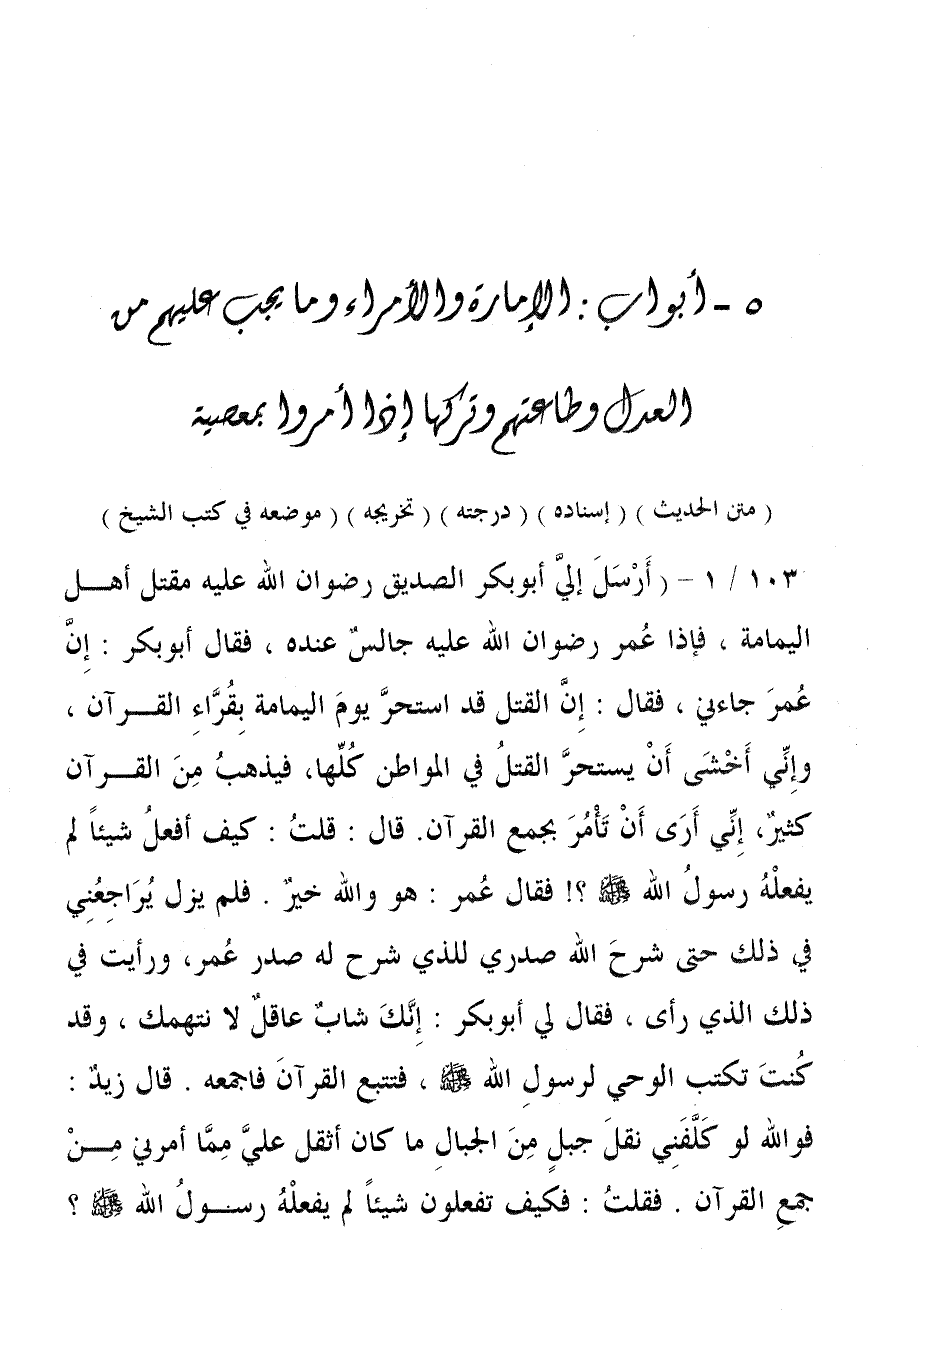 ٥ - أبواب : الإمارة والأمراء وما يجب عليهم من
العدل وطاعتهم وتركها إذا أمروا بمعصية
( متن الحديث ) ( إسناده ) ( درجته ) ( تخريجه ) ( موضعه في كتب الشيخ )
١٠٣ / ١ - ( أَرْسَلَ إليَّ أبوبكر الصديق رضوان الله عليه مقتل أهـــل
اليمامة ، فإذا عُمر رضوان الله عليه جالسٌ عنده ، فقال أبوبكر : إنَّ
عُمرَ جاءني ، فقال : إنَّ القتل قد استحرَّ يومَ اليمامة بِقُرَّاءِ القـــرآن ،
وإنِّي أَخْشَى أَنْ يستحرَّ القتلُ في المواطن كُلِّها، فيذهبُ مِنَ القـــرآن
كثيرٌ، إنِّي أَرَى أَنْ تَأْمُرَ بجمع القرآن. قال : قلتُ : كيف أفعلُ شيئاً لم
يفعلْهُ رسولُ الله ﷺ ؟! فقال عُمر : هو والله خيرٌ . فلم يزل يُرَاجِعُنِي
في ذلك حتى شرحَ الله صدري للذي شرح له صدر عُمر، ورأيت في
ذلك الذي رأى ، فقال لي أبوبكر : إنَّكَ شابٌ عاقلٌ لا نتهمك ، وقد
كُنتَ تكتب الوحي لرسولِ الله ﷺ ، فتتبع القرآنَ فاجمعه . قال زيدٌ :
فوالله لو كَلَّفَنِي نقلَ جبلٍ مِنَ الجبالِ ما كان أثقل عليَّ مِمَّا أمرني مِـــنْ
جمعِ القرآن . فقلتُ : فكيف تفعلون شيئاً لم يفعلْهُ رســولُ الله ﷺ ؟